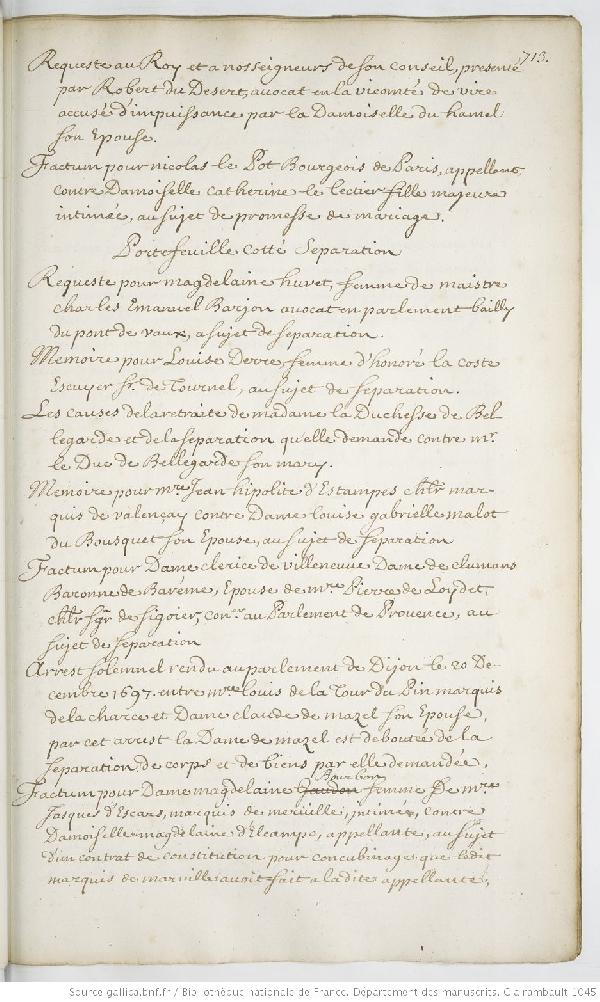 713.
Requeste au Roy et a nosseigneurs de son conseil, presenté
par Robert du Desert, avocat en la vicomté de vire
accusé d'impuissance par la Damoiselle du hamel
son Epouse.
Factum pour nicolas le Pot Bourgeois de Paris, appellant
contre Damoiselle Catherine le Lectier fille majeure
intimée, au sujet de promesse de mariage.
Portefeuille cotté Separation
Requeste pour magdelaine huret, femme de maistre
charles Emanuel Barjon avocat en parlement bailly
du pont de vaux, a sujet de separation.
Memoire pour Louise Derre, femme d'honoré la coste
Escuyer Sr. de Tournel, au sujet de separation.
Les causes de la retraite de madame la Duchesse de Bel
legarde et de la separation qu'elle demande contre mr.
le Duc de Bellegarde son mary.
Memoire pour mre Jean hipolite d'Estampes chlr mar-
quis de valençay contre Dame louise gabrielle malot
du Bousquet son Epouse, au sujet de separation
Factum pour Dame clerice de villeneuve Dame de clumans
Baronne de Barême, Epouse de mre Pierre de Loydet,
chlr sgr de sigoier, conr. au Parlement de Provence, au
sujet de separation
Arrest solemnel rendu au parlement de Dijon le 20 De-
cembre 1697. entre mre louis de la Tour du Pin marquis
de la charce et Dame claude de mazel son Epouse,
par cet arrest la Dame de mazel est deboutée de la
separation de corps et de biens par elle demandée,
Bourbon
Factum pour Dame magdelaine femme De mre
Jasques d'Escars, marquis de merville, intimée, contre
Damoiselle magdelaine d'Elcampe, appellante, au sujet
d'un contrat de constitution pour concubinage que ledit
marquis de marville avoit fait a ladite appellante,
Source gallica.bnf.fr / Bibliothèque nationale de France. Département des manuscrits. Clairambault 1045